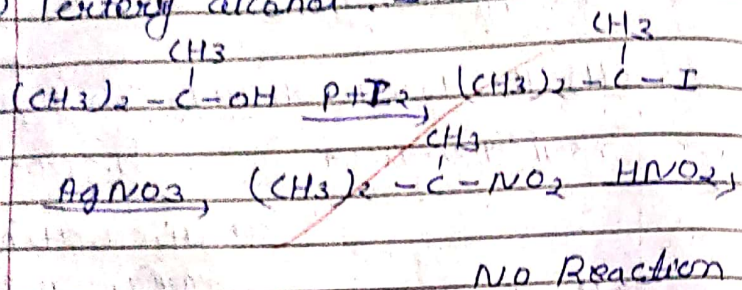 Tertery alcohol.
CH3
CH3
(CH3)2 - C - OH P+I2, (CH3)2 - C - I
CH3
AgNO3, (CH3)2 - C - NO2 HNO2,
No Reaction